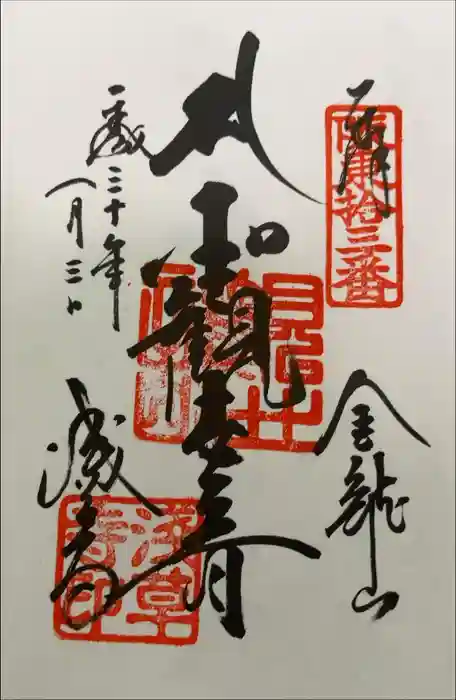 奉拝
坂東拾三番
金龍山
聖観世音
平成三十年
一月三日
浅草寺
浅草寺印